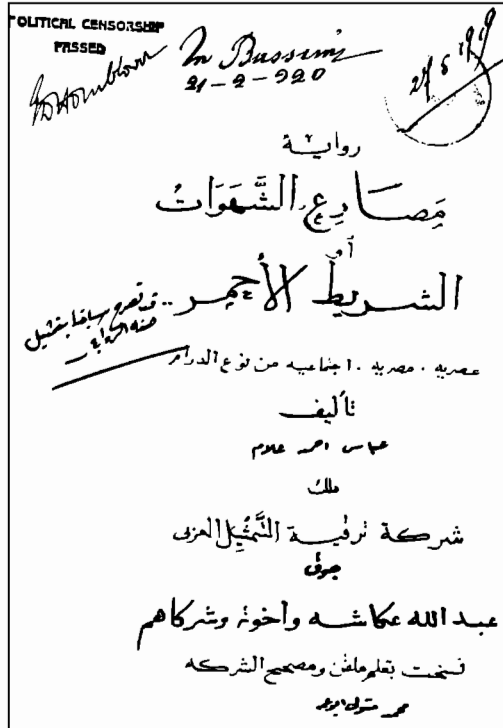 POLITICAL CENSORSHIP
PASSED
21-2-920
27 6 1919
رواية
مَصَارِع الشَّهَوَاتُ
أو
الشريط الأحمر
.. قد تصرح سابقا بتمثيل
هذه الرواية
عصريه . مصريه . اجتماعيه من نوع الدرام
تأليف
عباس احمد علام
ملك
شركة ترقية التَّمثِيل العربى
جوق
عبد الله عكاشه وأخوته وشركاهم
نسخت بقلم ملقن ومصحح الشركه
محمد متولى